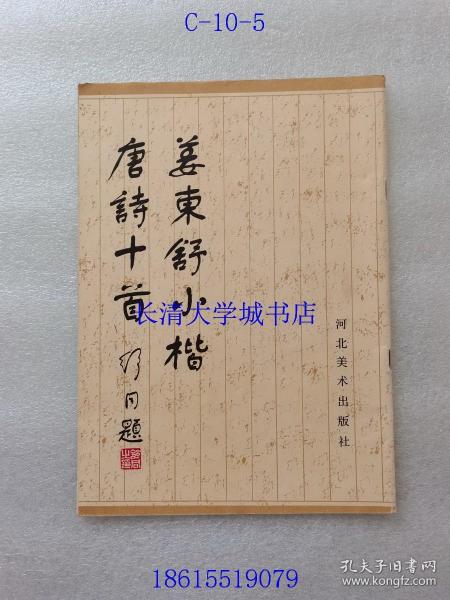 C-10-5
姜東舒小楷
唐詩十首
舒同題
河北美术出版社
长清大学城书店
18615519079
孔夫子旧书网
www.kongfz.com